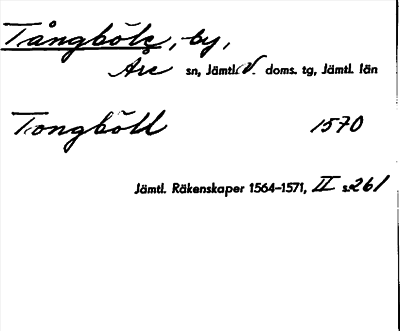 Tångböle, by,
Åre sn, Jämtl. V. doms. tg, Jämtl. län
Tongböll 1570
Jämtl. Räkenskaper 1564-1571, II s. 261